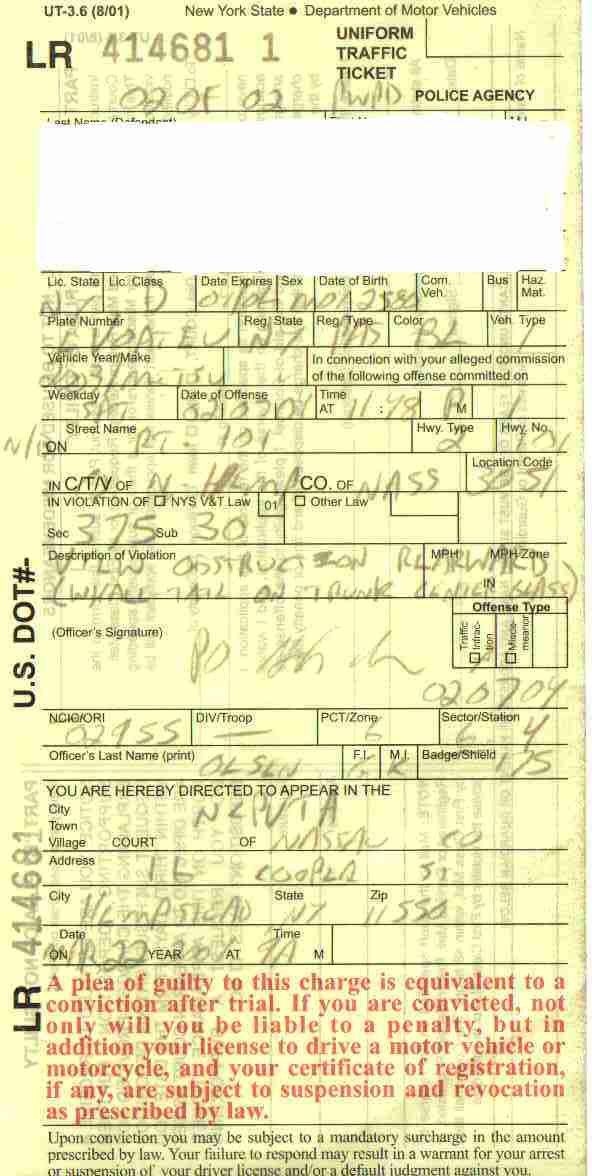 UT-3.6 (8/01) New York State ● Department of Motor Vehicles
LR 414681 1
UNIFORM
TRAFFIC
TICKET
02 OF 02 PWPD
POLICE AGENCY
Last Name (Defendant)
Lic. State Lic. Class Date Expires Sex Date of Birth Com. Veh. Bus Haz. Mat.
NY D
Plate Number Reg. State Reg. Type Color Veh. Type
NY PAS BL 1
Vehicle Year/Make
In connection with your alleged commission
of the following offense committed on
Weekday Date of Offense Time
SAT 020704 AT 11:48 P M
Street Name Hwy. Type Hwy. No.
ON RT. 101 2 101
Location Code
IN C/T/V OF N HEMP CO. OF NASS
IN VIOLATION OF NYS V&T Law 01 Other Law
Sec 375 Sub 30
Description of Violation MPH MPH/Zone
VIEW OBSTRUCTION REARWARD
(WHALE TAIL ON TRUNK GLASS)
IN
Offense Type
(Officer's Signature)
Traffic Infrac-tion
Misde-meanor
020704
U.S. DOT#-
NCIC/ORI DIV/Troop PCT/Zone Sector/Station
02955 — 6 4
Officer's Last Name (print) F.I. M.I. Badge/Shield
OLSEN G K 175
YOU ARE HEREBY DIRECTED TO APPEAR IN THE
City
Town
Village COURT OF NASSAU CO
Address
16 COOPER ST
City State Zip
HEMPSTEAD NY 11550
Date Time
ON MAR 22 YEAR 2004 AT 9A M
LR 414681
A plea of guilty to this charge is equivalent to a
conviction after trial. If you are convicted, not
only will you be liable to a penalty, but in
addition your license to drive a motor vehicle or
motorcycle, and your certificate of registration,
if any, are subject to suspension and revocation
as prescribed by law.
Upon conviction you may be subject to a mandatory surcharge in the amount
prescribed by law. Your failure to respond may result in a warrant for your arrest
or suspension of your driver license and/or a default judgment against you.